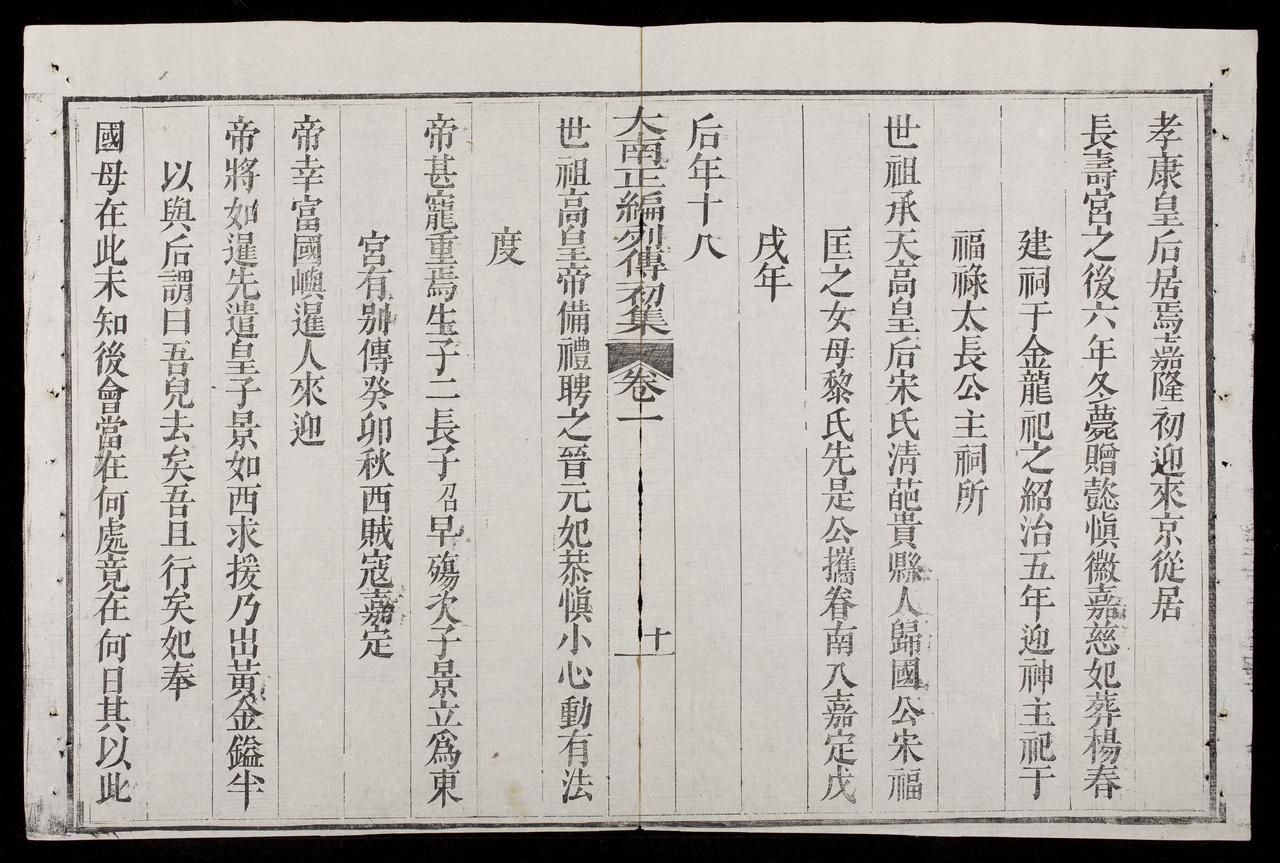 孝康皇后居焉嘉隆初迎來京從居
長壽宮之後六年冬薨贈懿愼徽嘉慈妃葬楊春
建祠于金龍祀之紹治五年迎神主祀于
福祿太長公主祠所
世祖承天高皇后宋氏清葩貴縣人歸國公宋福
匡之女母黎氏先是公攜眷南入嘉定戊
戌年
后年十八
大南正編列傳初集 卷一 十
世祖高皇帝備禮聘之晉元妃恭愼小心動有法
度
帝甚寵重焉生子二長子昭早殤次子景立爲東
宮有別傳癸卯秋西賊寇嘉定
帝幸富國嶼暹人來迎
帝將如暹先遣皇子景如西求援乃出黃金鎰半
以與后謂曰吾兒去矣吾且行矣妃奉
國母在此未知後會當在何處竟在何日其以此